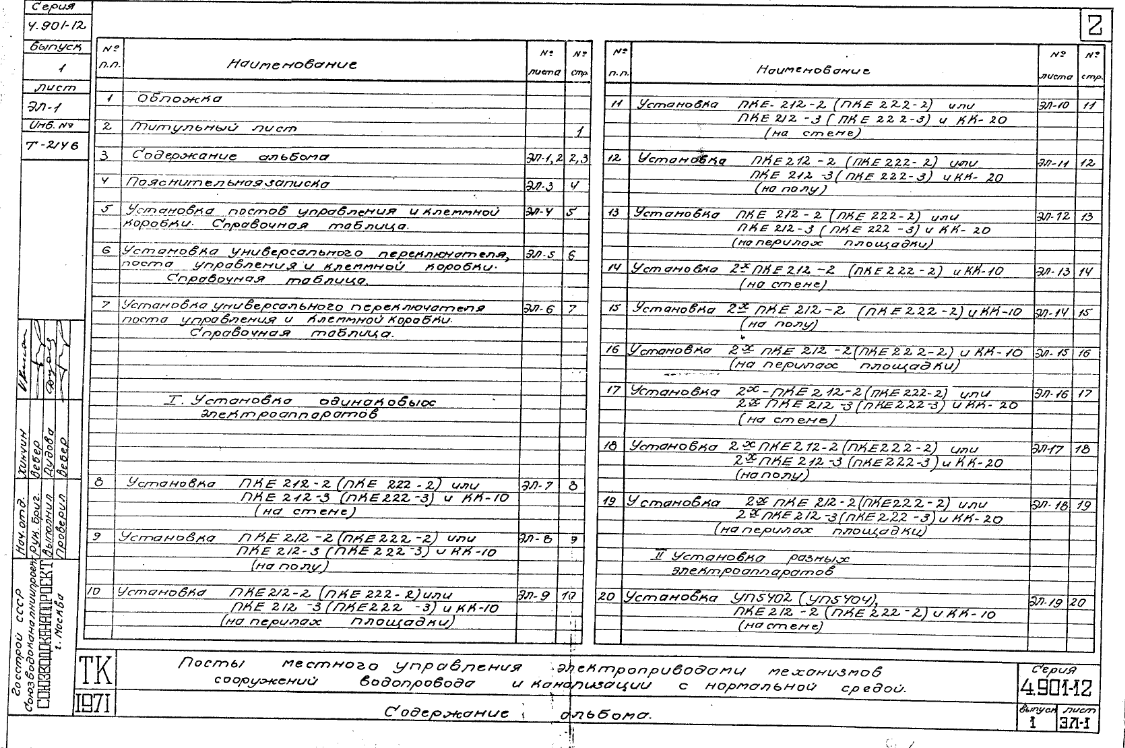 Серия
4.901-12
Выпуск
1
Лист
ЭЛ-1
Инв. №
Т-2146
2
№ п.п. Наименование № листа № стр.
1 Обложка
2 Титульный лист 1
3 Содержание альбома ЭЛ-1,2 2,3
4 Пояснительная записка ЭЛ-3 4
5 Установка постов управления и клеммной ЭЛ-4 5
коробки. Справочная таблица.
6 Установка универсального переключателя, ЭЛ-5 6
поста управления и клеммной коробки.
Справочная таблица.
7 Установка универсального переключателя ЭЛ-6 7
поста управления и клеммной коробки.
Справочная таблица.
I. Установка одинаковых
электроаппаратов
8 Установка ПКЕ 212-2 (ПКЕ 222-2) или ЭЛ-7 8
ПКЕ 212-3 (ПКЕ 222-3) и КК-10
(на стене)
9 Установка ПКЕ 212-2 (ПКЕ 222-2) или ЭЛ-8 9
ПКЕ 212-3 (ПКЕ 222-3) и КК-10
(на полу)
10 Установка ПКЕ 212-2 (ПКЕ 222-2) или ЭЛ-9 10
ПКЕ 212-3 (ПКЕ 222-3) и КК-10
(на перилах площадки)
№ п.п. Наименование № листа № стр.
11 Установка ПКЕ-212-2 (ПКЕ 222-2) или ЭЛ-10 11
ПКЕ 212-3 (ПКЕ 222-3) и КК-20
(на стене)
12 Установка ПКЕ 212-2 (ПКЕ 222-2) или ЭЛ-11 12
ПКЕ 212-3 (ПКЕ 222-3) и КК-20
(на полу)
13 Установка ПКЕ 212-2 (ПКЕ 222-2) или ЭЛ-12 13
ПКЕ 212-3 (ПКЕ 222-3) и КК-20
(на перилах площадки)
14 Установка 2х ПКЕ 212-2 (ПКЕ 222-2) и КК-10 ЭЛ-13 14
(на стене)
15 Установка 2х ПКЕ 212-2 (ПКЕ 222-2) и КК-10 ЭЛ-14 15
(на полу)
16 Установка 2х ПКЕ 212-2 (ПКЕ 222-2) и КК-10 ЭЛ-15 16
(на перилах площадки)
17 Установка 2х-ПКЕ 212-2 (ПКЕ 222-2) или ЭЛ-16 17
2х ПКЕ 212-3 (ПКЕ 222-3) и КК-20
(на стене)
18 Установка 2х ПКЕ 212-2 (ПКЕ 222-2) или ЭЛ-17 18
2х ПКЕ 212-3 (ПКЕ 222-3) и КК-20
(на полу)
19 Установка 2х ПКЕ 212-2 (ПКЕ 222-2) или ЭЛ-18 19
2х ПКЕ 212-3 (ПКЕ 222-3) и КК-20
(на перилах площадки)
II Установка разных
электроаппаратов
20 Установка УП5402 (УП5404), ЭЛ-19 20
ПКЕ 212-2 (ПКЕ 222-2) и КК-10
(на стене)
Нач. отд. Хинчин
Рук. бриг. Вебер
Выполнил Дудова
Проверил Вебер
Госстрой СССР
Союзводоканалниипроект
СОЮЗВОДОКАНАЛПРОЕКТ
г. Москва
ТК
1971
Посты местного управления электроприводами механизмов
сооружений водопровода и канализации с нормальной средой.
Содержание альбома.
Серия
4.901-12
Выпуск Лист
1 ЭЛ-1